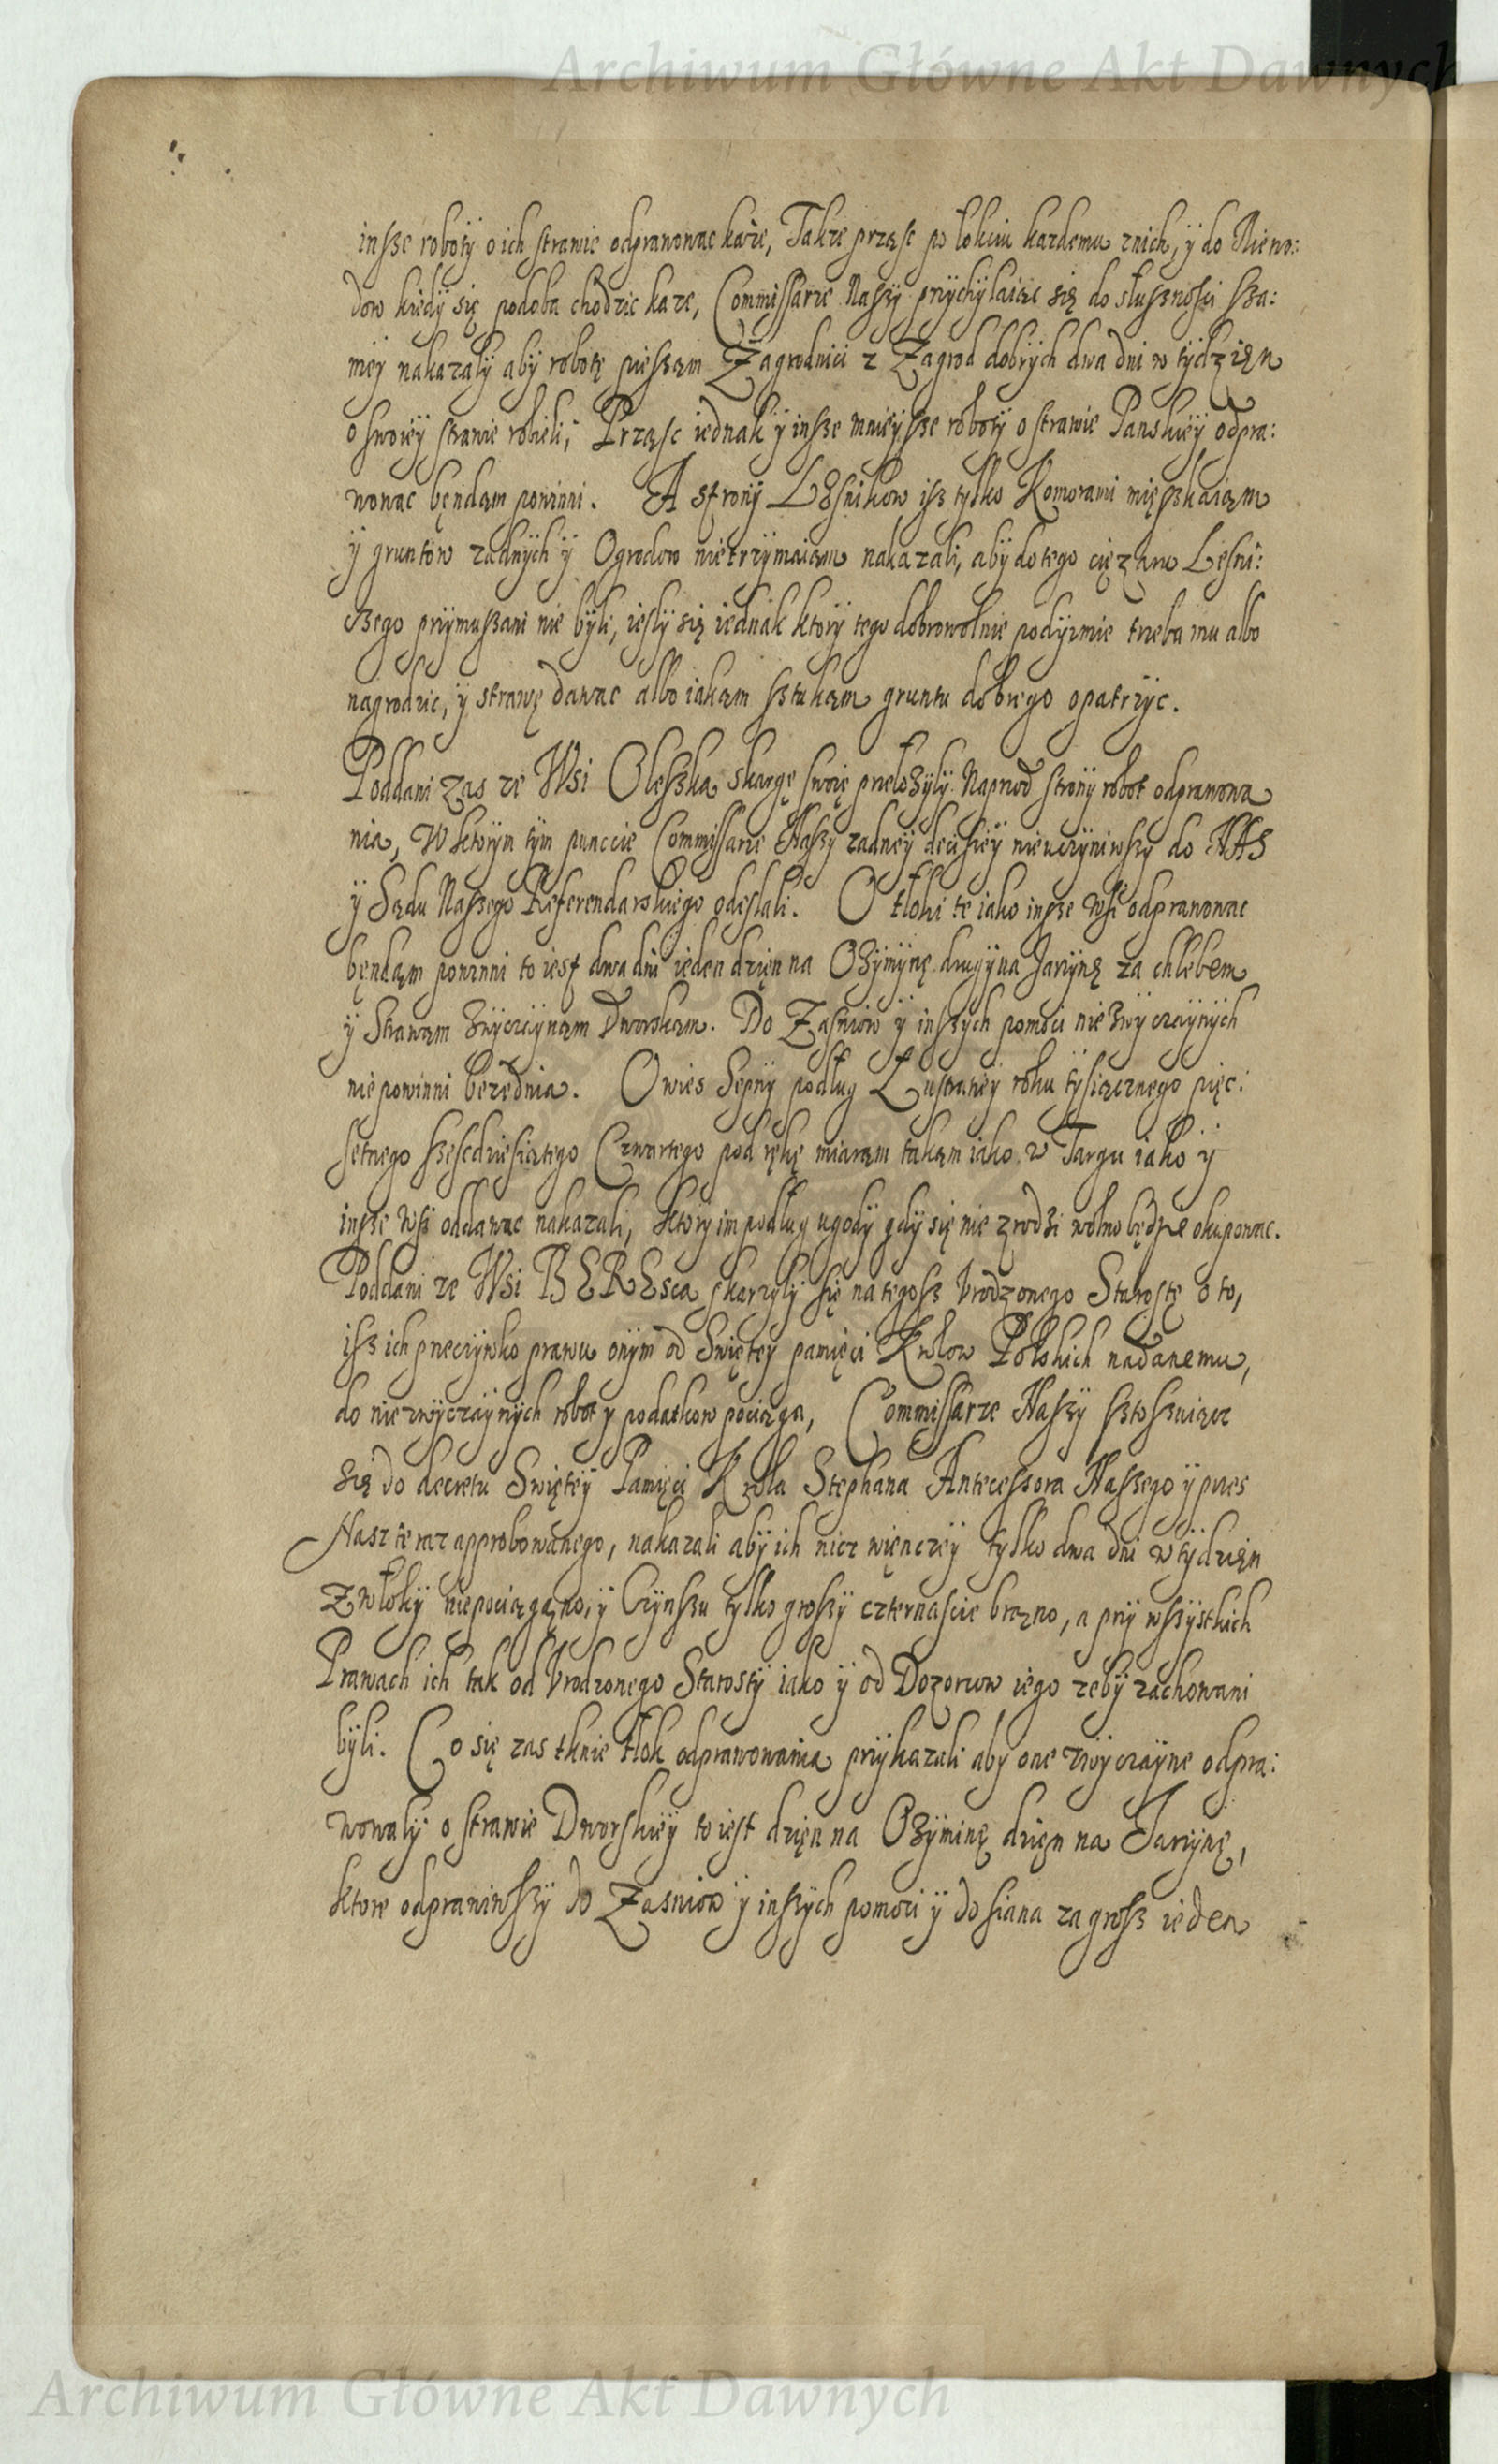 Archiwum Główne Akt Dawnych
insze roboty o ich strawie odprawowac każe, Takze prząsc po łokciu kazdemu znich, ÿ do Niewo:
dow kiedÿ się podoba chodzic kaze, Commissarze Naszÿ prÿchÿlaiąc się do słusznosci sza:
meÿ nakazalÿ abÿ robotę pieszam Zagrodnici z Zagrod dobrÿch dwa dni w tÿdzięn
o swoieÿ strawie robieli, Prząsc iednak ÿ insze mnieÿsze robotÿ o strawie Panskieÿ odpra:
wowac bęndąm powinni. A stronÿ Lesnikow isz tÿlko Komorami mięszkaiąm
ÿ gruntow zadnÿch ÿ Ogrodow nietrzÿmaiąm nakazali, abÿ do tego cięzaru Lesni:
czego prÿmuszani nie bÿli, ieslÿ się iednak ktorÿ tego dobrowolnie podÿmie trzeba mu albo
nagrodzic, ÿ strawę dawac albo iakąm sztukąm gruntu dobrego opatrzÿc.
Poddani zas ze Wsi Oleszka skargę swoię przełozÿlÿ. Naprzod stronÿ robot odprawowa
nia, W ktorÿm tÿm punccie Commissarze Naszÿ zadneÿ decisieÿ nieuczÿniwszÿ do NAS
ÿ Sądu Naszego Referendarskiego odesłali. O tłoki te iako insze wsi odprawowac
bęndąm powinni to iest dwa dni ieden dzięn na Ozÿmÿnę drugÿ na Jarzÿnę za chlebem
ÿ Strawąm zwÿczaÿnąm Dworskąm. Do Zasniow ÿ inszÿch pomoci niezwÿczaÿnÿch
niepowinni będzdnia. Owies Sepnÿ podług Lustratieÿ roku tÿsiącznego pięc:
setnego szescdziesiątego Czwartego pod rękę miarąm takąm iako w Targu iako ÿ
insze wsi oddawac nakazali, ktorÿ im podług ugodÿ gdÿ się nie zrodzi wolno będzie okupowac.
Poddani ze Wsi BEREsca skarzylÿ się na tegosz Vrodzonego Starostę o to,
isz ich przeciwko prawu onÿm od Swiętej pamięci Krolow Polskich nadanemu,
do niezwÿczaÿnÿch robot ÿ podatkow pociąga, Commissarze Naszÿ stoszuiącz
się do decretu Swięteÿ Pamięci Krola Stephana Antecessora Naszego ÿ przes
Nasz teraz approbowanego, nakazali abÿ ich nicz więnczeÿ tÿlko dwa dni w tÿdzięn
z włokÿ niepociągano, ÿ Czÿnszu tÿlko groszÿ czternascie brąno, a prÿ wszÿstkich
Prawach ich tak od Vrodzonego Starostÿ iako ÿ od Dozorcow iego zebÿ zachowani
bÿli. Co się zas tknie tłok odprawowania prÿkazali abÿ one zwÿczaÿne odpra:
wowalÿ o strawie Dworskieÿ to iest dzięn na Ozÿminę dzięn na Jarzÿnę,
ktore odprawiwszÿ do Zasniow ÿ inszÿch pomoci ÿ do siana za grosz ieden
Archiwum Główne Akt Dawnych